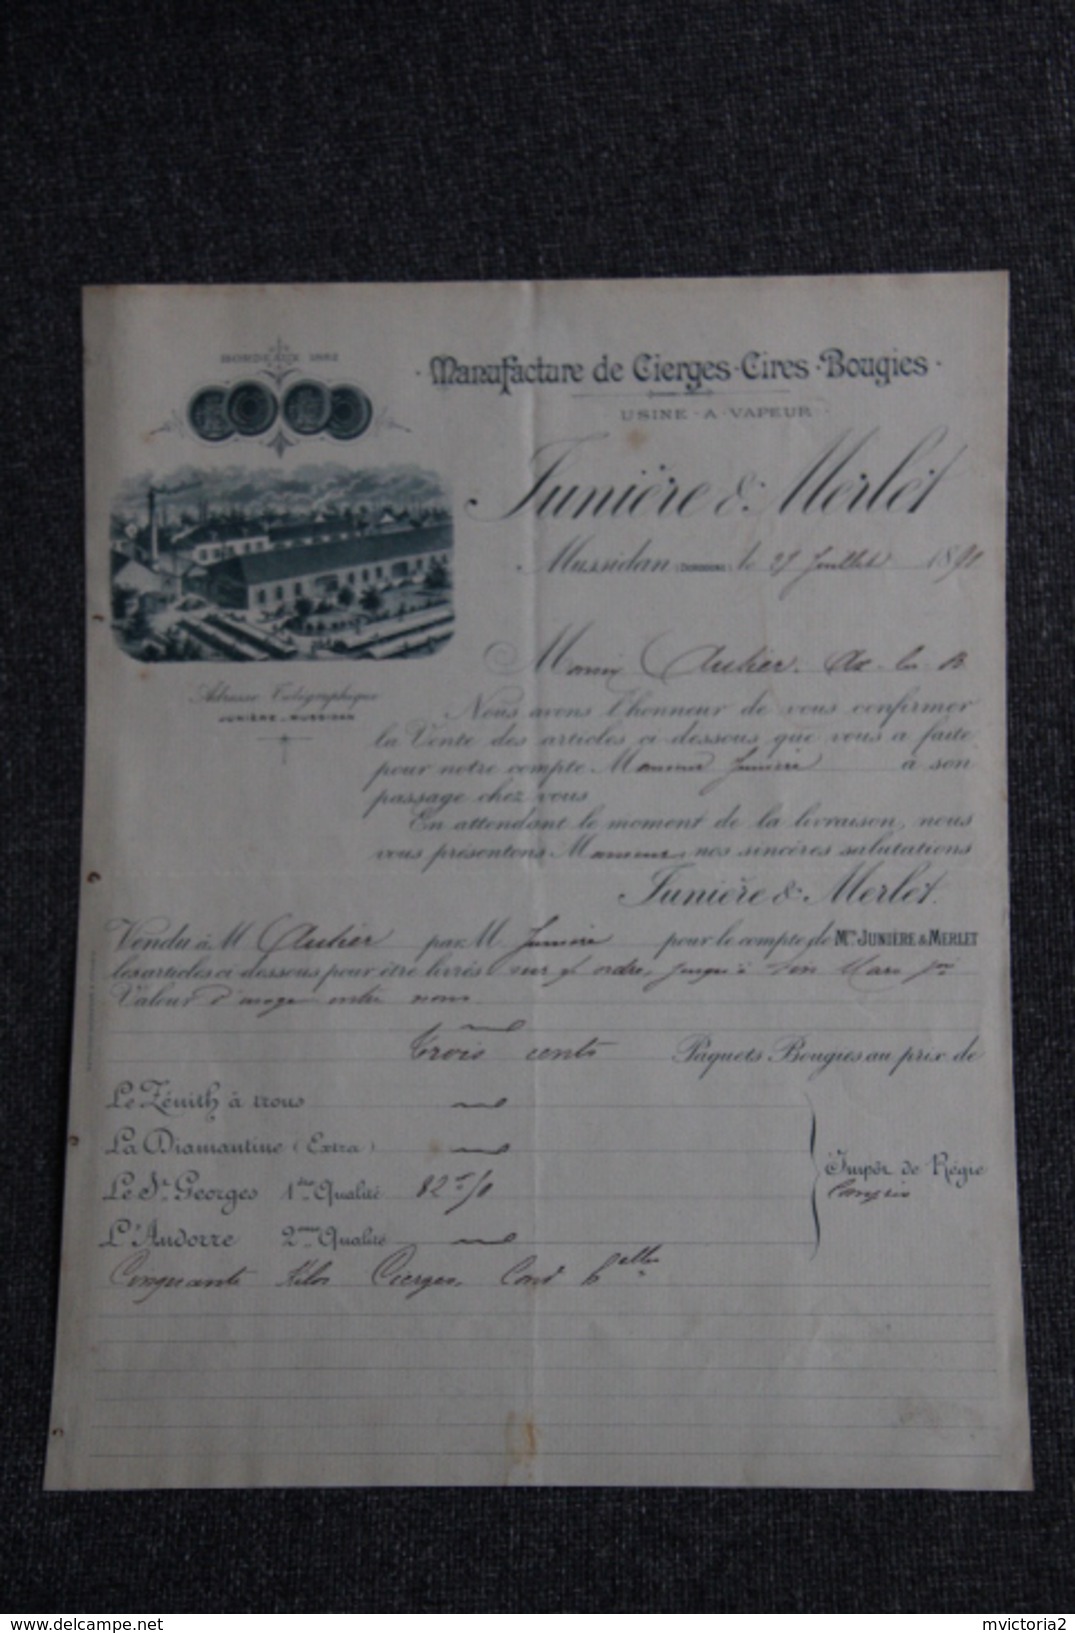 BORDEAUX 1882
· Manufacture de Cierges-Cires-Bougies ·
USINE - A - VAPEUR
Junière & Merlet
Mussidan (DORDOGNE) le 27 Juillet 1891
Monsieur Autier. Ax-les-B
Adresse Télégraphique
JUNIÈRE_MUSSIDAN
Nous avons l'honneur de vous confirmer
la Vente des articles ci-dessous que vous a faite
pour notre compte Monsieur Junière à son
passage chez vous
En attendant le moment de la livraison, nous
vous présentons, Monsieur, nos sincères salutations
Junière & Merlet.
Vendu à M Autier par M Junière pour le compte de Mrs JUNIÈRE & MERLET
les articles ci-dessous pour être livrés sur ordre, jusqu'à fin Mars
Valeur d'usage entre nous
Trois cents Paquets Bougies au prix de
Le Zénith à trous
La Diamantine (Extra)
Le St Georges 1ère Qualité 82
L'Andorre 2ème Qualité
Impôt de Régie
Compris
Cinquante Kilos Cierges, Cond
delcampe.net
mvictoria2